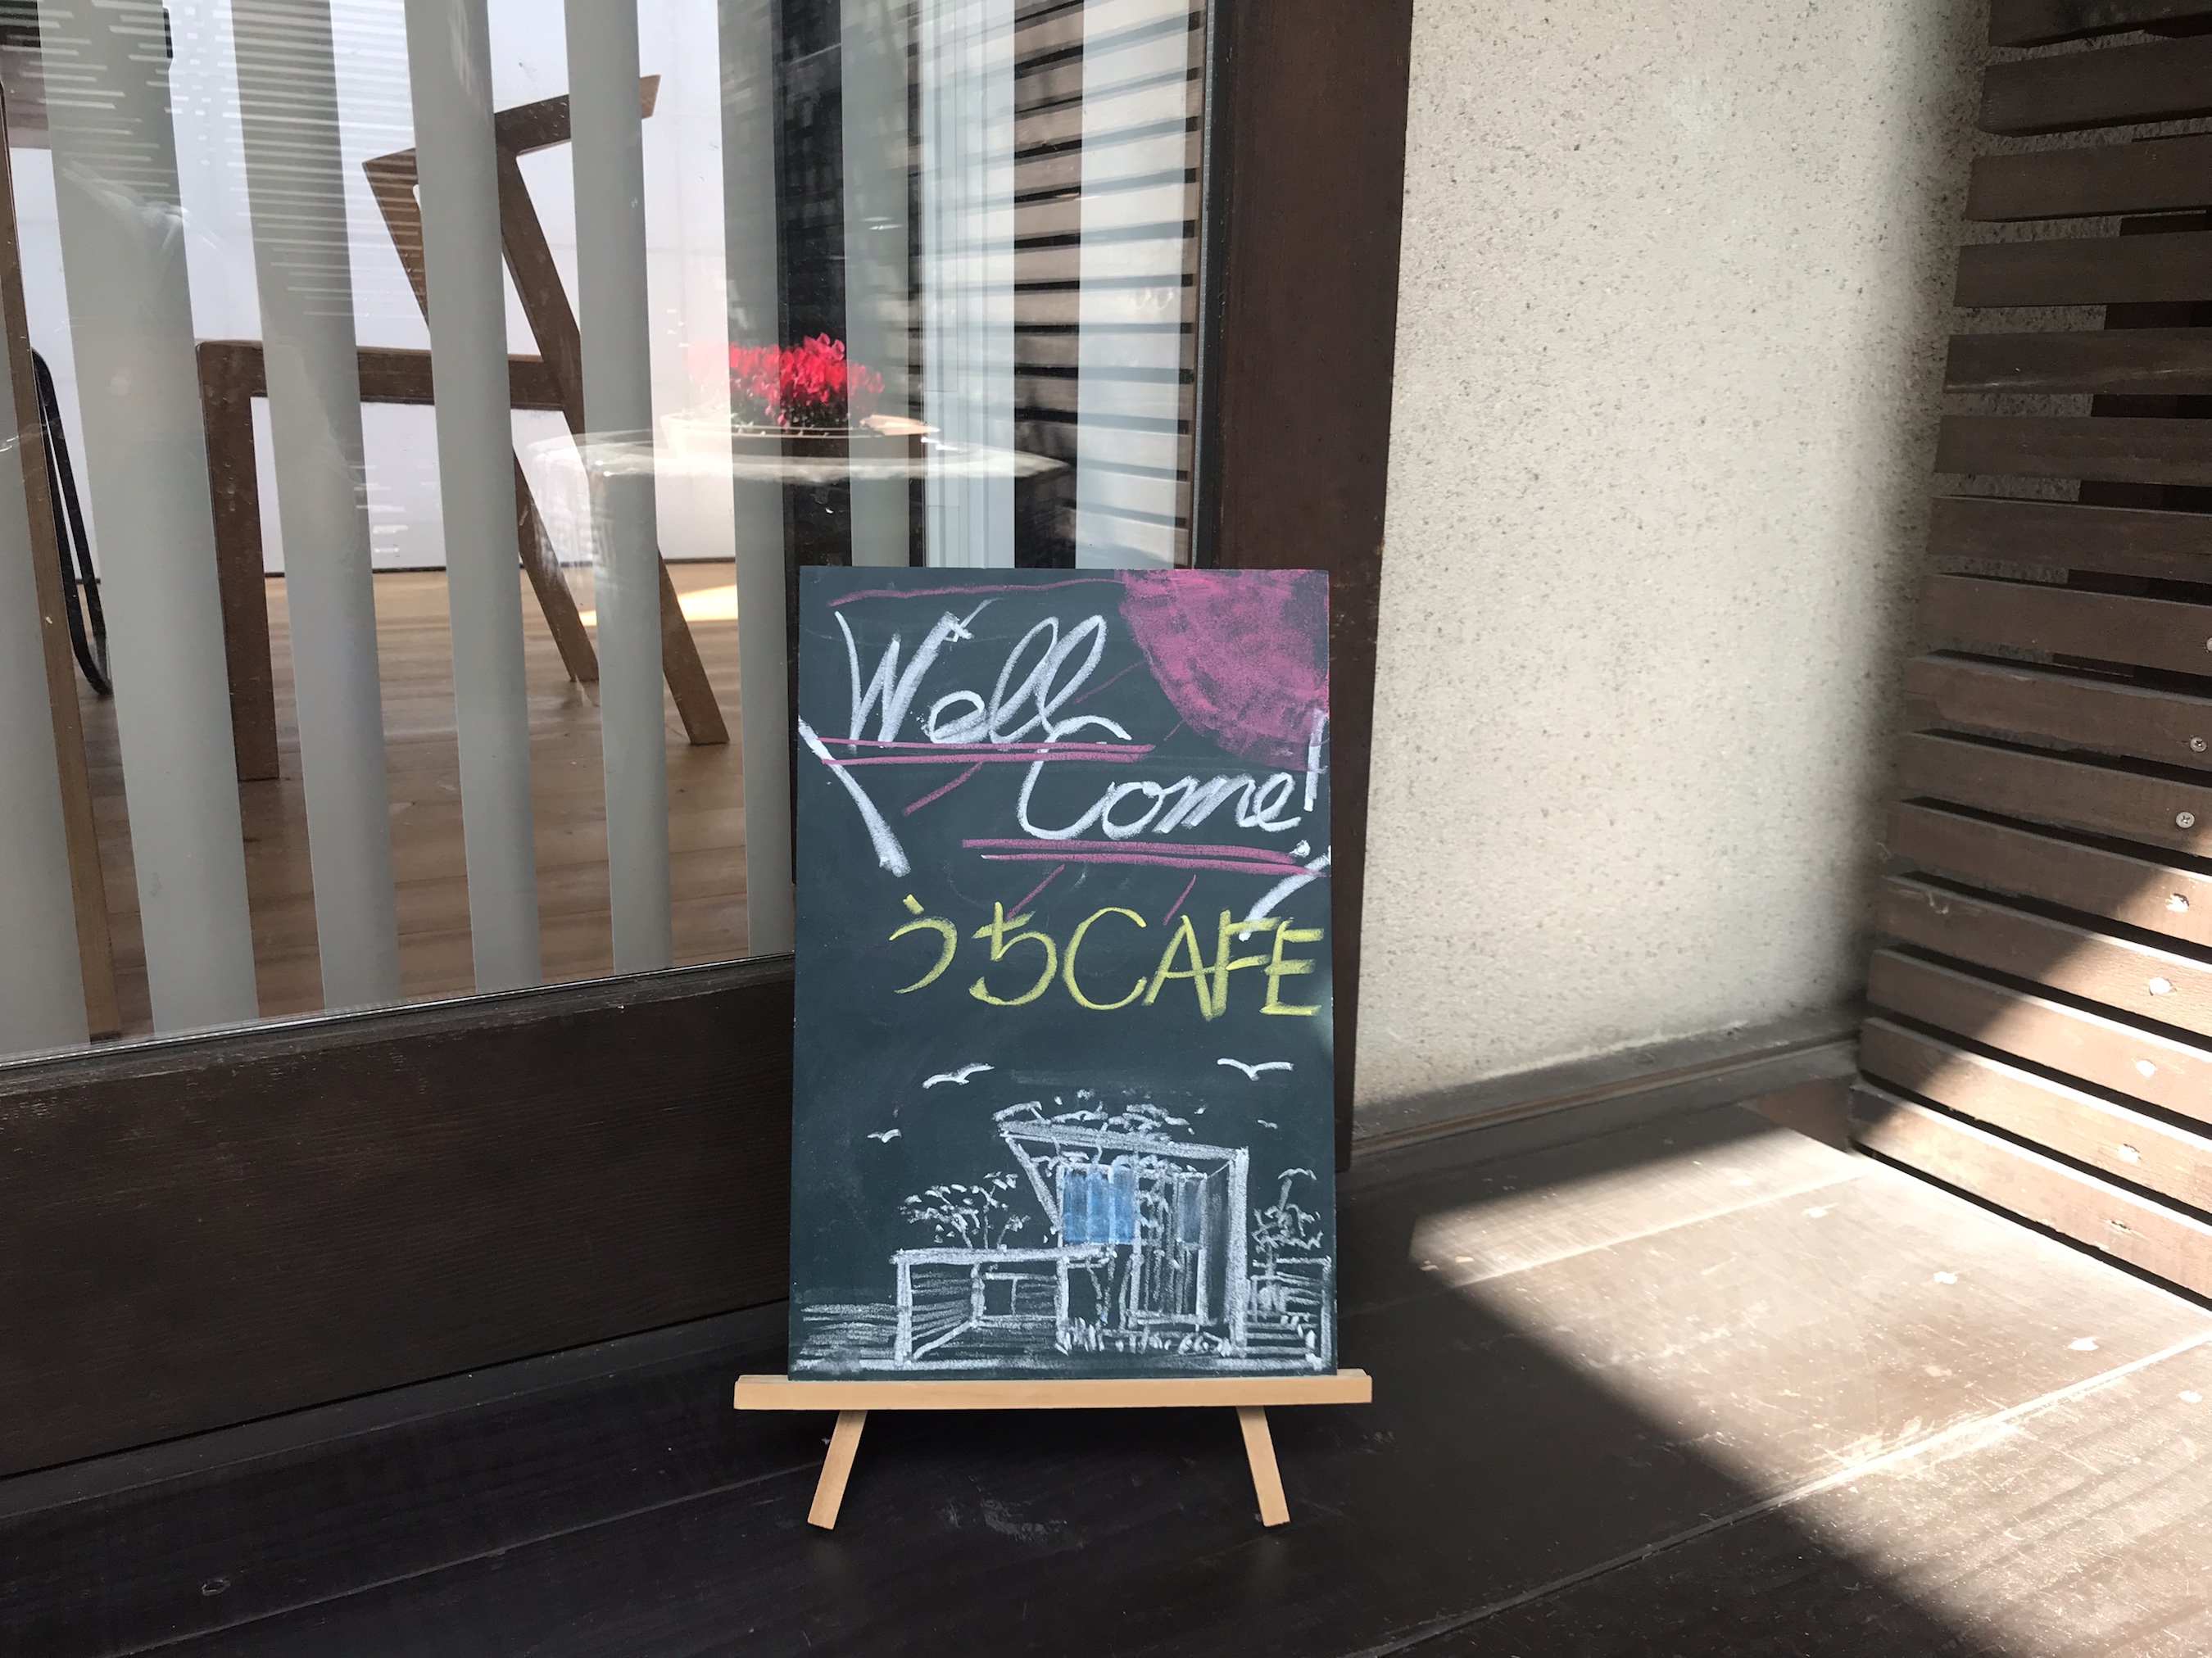 Well
Come!
うちCAFE